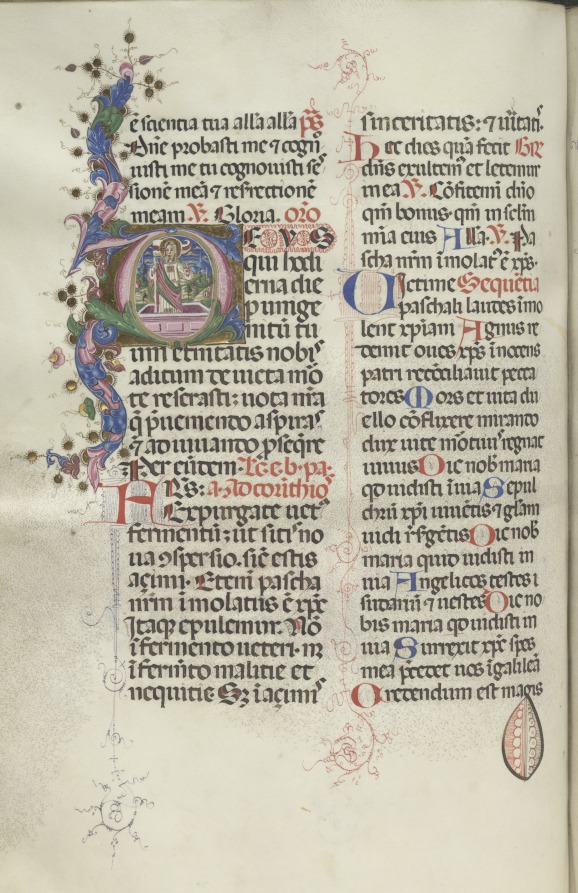 ē scientia tua alla alla p̄s
Dñe probasti me ⁊ cogñ
uisti me tu cognouisti se
sionē meā ⁊ resrectionē
meam V̄. Gloria. oro
DEVS
qui hodi
erna die
p unige
nitū tu
um eternitatis nobis
aditum deuicta mor
te reserasti: uota nrā
q̄ p̄ueniendo aspiras
⁊ adiuuando p̄seqre
Per eūdem Lc̄. e. b. pa.
FRS: a. Ad corīthios
Expurgate uet
fermentū: ut sitis no
ua ꝯspersio. sic̄ estis
açimi. Etenī pascha
nr̄m īmolatus ē xp̄c
Itaqꝫ epulemur. Nō
ī fermento ueteri. nꝫ
ī fermīto malitie et
nequitie Sꝫ ī açimis
sinceritatis: ⁊ uītatis.
Hec dies quā fecit Gr̄
dn̄s exultem̄ et letemur
in ea V̄. Cōfitemī dn̄o
qm̄ bonus. qm̄ in sclm̄
mīa eius Alla. V̄. Pa
scha nr̄m īmolat᷒ ē xp̄s.
Victime Sequētia
paschali laudes īmo
lent xp̄iani Agnus re
demit oues xp̄s īnocens
patri recōciliauit pecca
tores Mors et uita du
ello cōflixere mirando
dux uite mōtuus regnat
uiuus Dic nob̄ maria
qd uidisti ī uia Sepul
chrū xp̄i uiuētis ⁊ glam
uidi rs̄gētis Dic nob̄
maria quid uidisti in
uia Angelicos testes ī
sudariū ⁊ uestes Dic no
bis maria qd uidisti in
uia Surrexit xp̄c spes
mea p̄cedet uos ī galileā
Credendum est magis